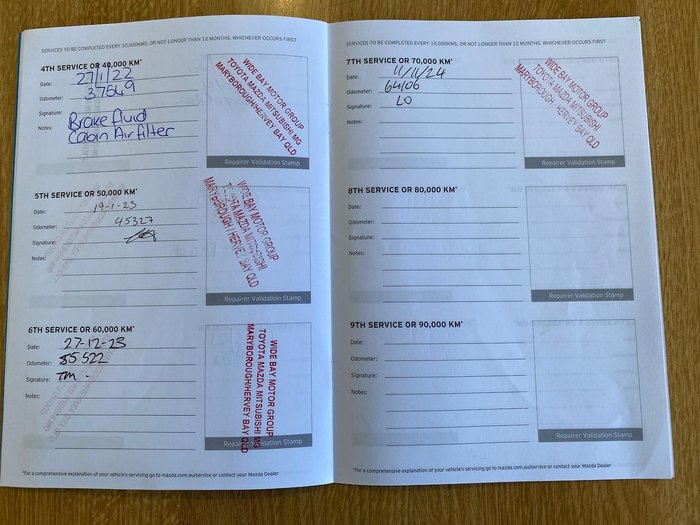 SERVICES TO BE COMPLETED EVERY 10,000KMS, OR NOT LONGER THAN 12 MONTHS, WHICHEVER OCCURS FIRST
4TH SERVICE OR 40,000 KM*
Date: 27/1/22
Odometer: 37549
Signature:
Notes: Brake fluid
Cabin Air filter
WIDE BAY MOTOR GROUP
TOYOTA MAZDA MITSUBISHI MG
MARYBOROUGH/HERVEY BAY QLD
Repairer Validation Stamp
5TH SERVICE OR 50,000 KM*
Date: 19-1-23
Odometer: 45327
Signature:
Notes:
WIDE BAY MOTOR GROUP
TOYOTA MAZDA MITSUBISHI
MARYBOROUGH/HERVEY BAY QLD
Repairer Validation Stamp
6TH SERVICE OR 60,000 KM*
Date: 27-12-23
Odometer: 55522
Signature: TM .
Notes:
WIDE BAY MOTOR GROUP
TOYOTA MAZDA MITSUBISHI MG
MARYBOROUGH/HERVEY BAY QLD
Repairer Validation Stamp
*For a comprehensive explanation of your vehicle's servicing go to mazda.com.au/service or contact your Mazda Dealer
SERVICES TO BE COMPLETED EVERY 10,000KMS, OR NOT LONGER THAN 12 MONTHS, WHICHEVER OCCURS FIRST
7TH SERVICE OR 70,000 KM*
Date: 11/11/24
Odometer: 64106
Signature: LO
Notes:
WIDE BAY MOTOR GROUP
TOYOTA MAZDA MITSUBISHI MG
MARYBOROUGH / HERVEY BAY QLD
Repairer Validation Stamp
8TH SERVICE OR 80,000 KM*
Date:
Odometer:
Signature:
Notes:
Repairer Validation Stamp
9TH SERVICE OR 90,000 KM*
Date:
Odometer:
Signature:
Notes:
Repairer Validation Stamp
*For a comprehensive explanation of your vehicle's servicing go to mazda.com.au/service or contact your Mazda Dealer